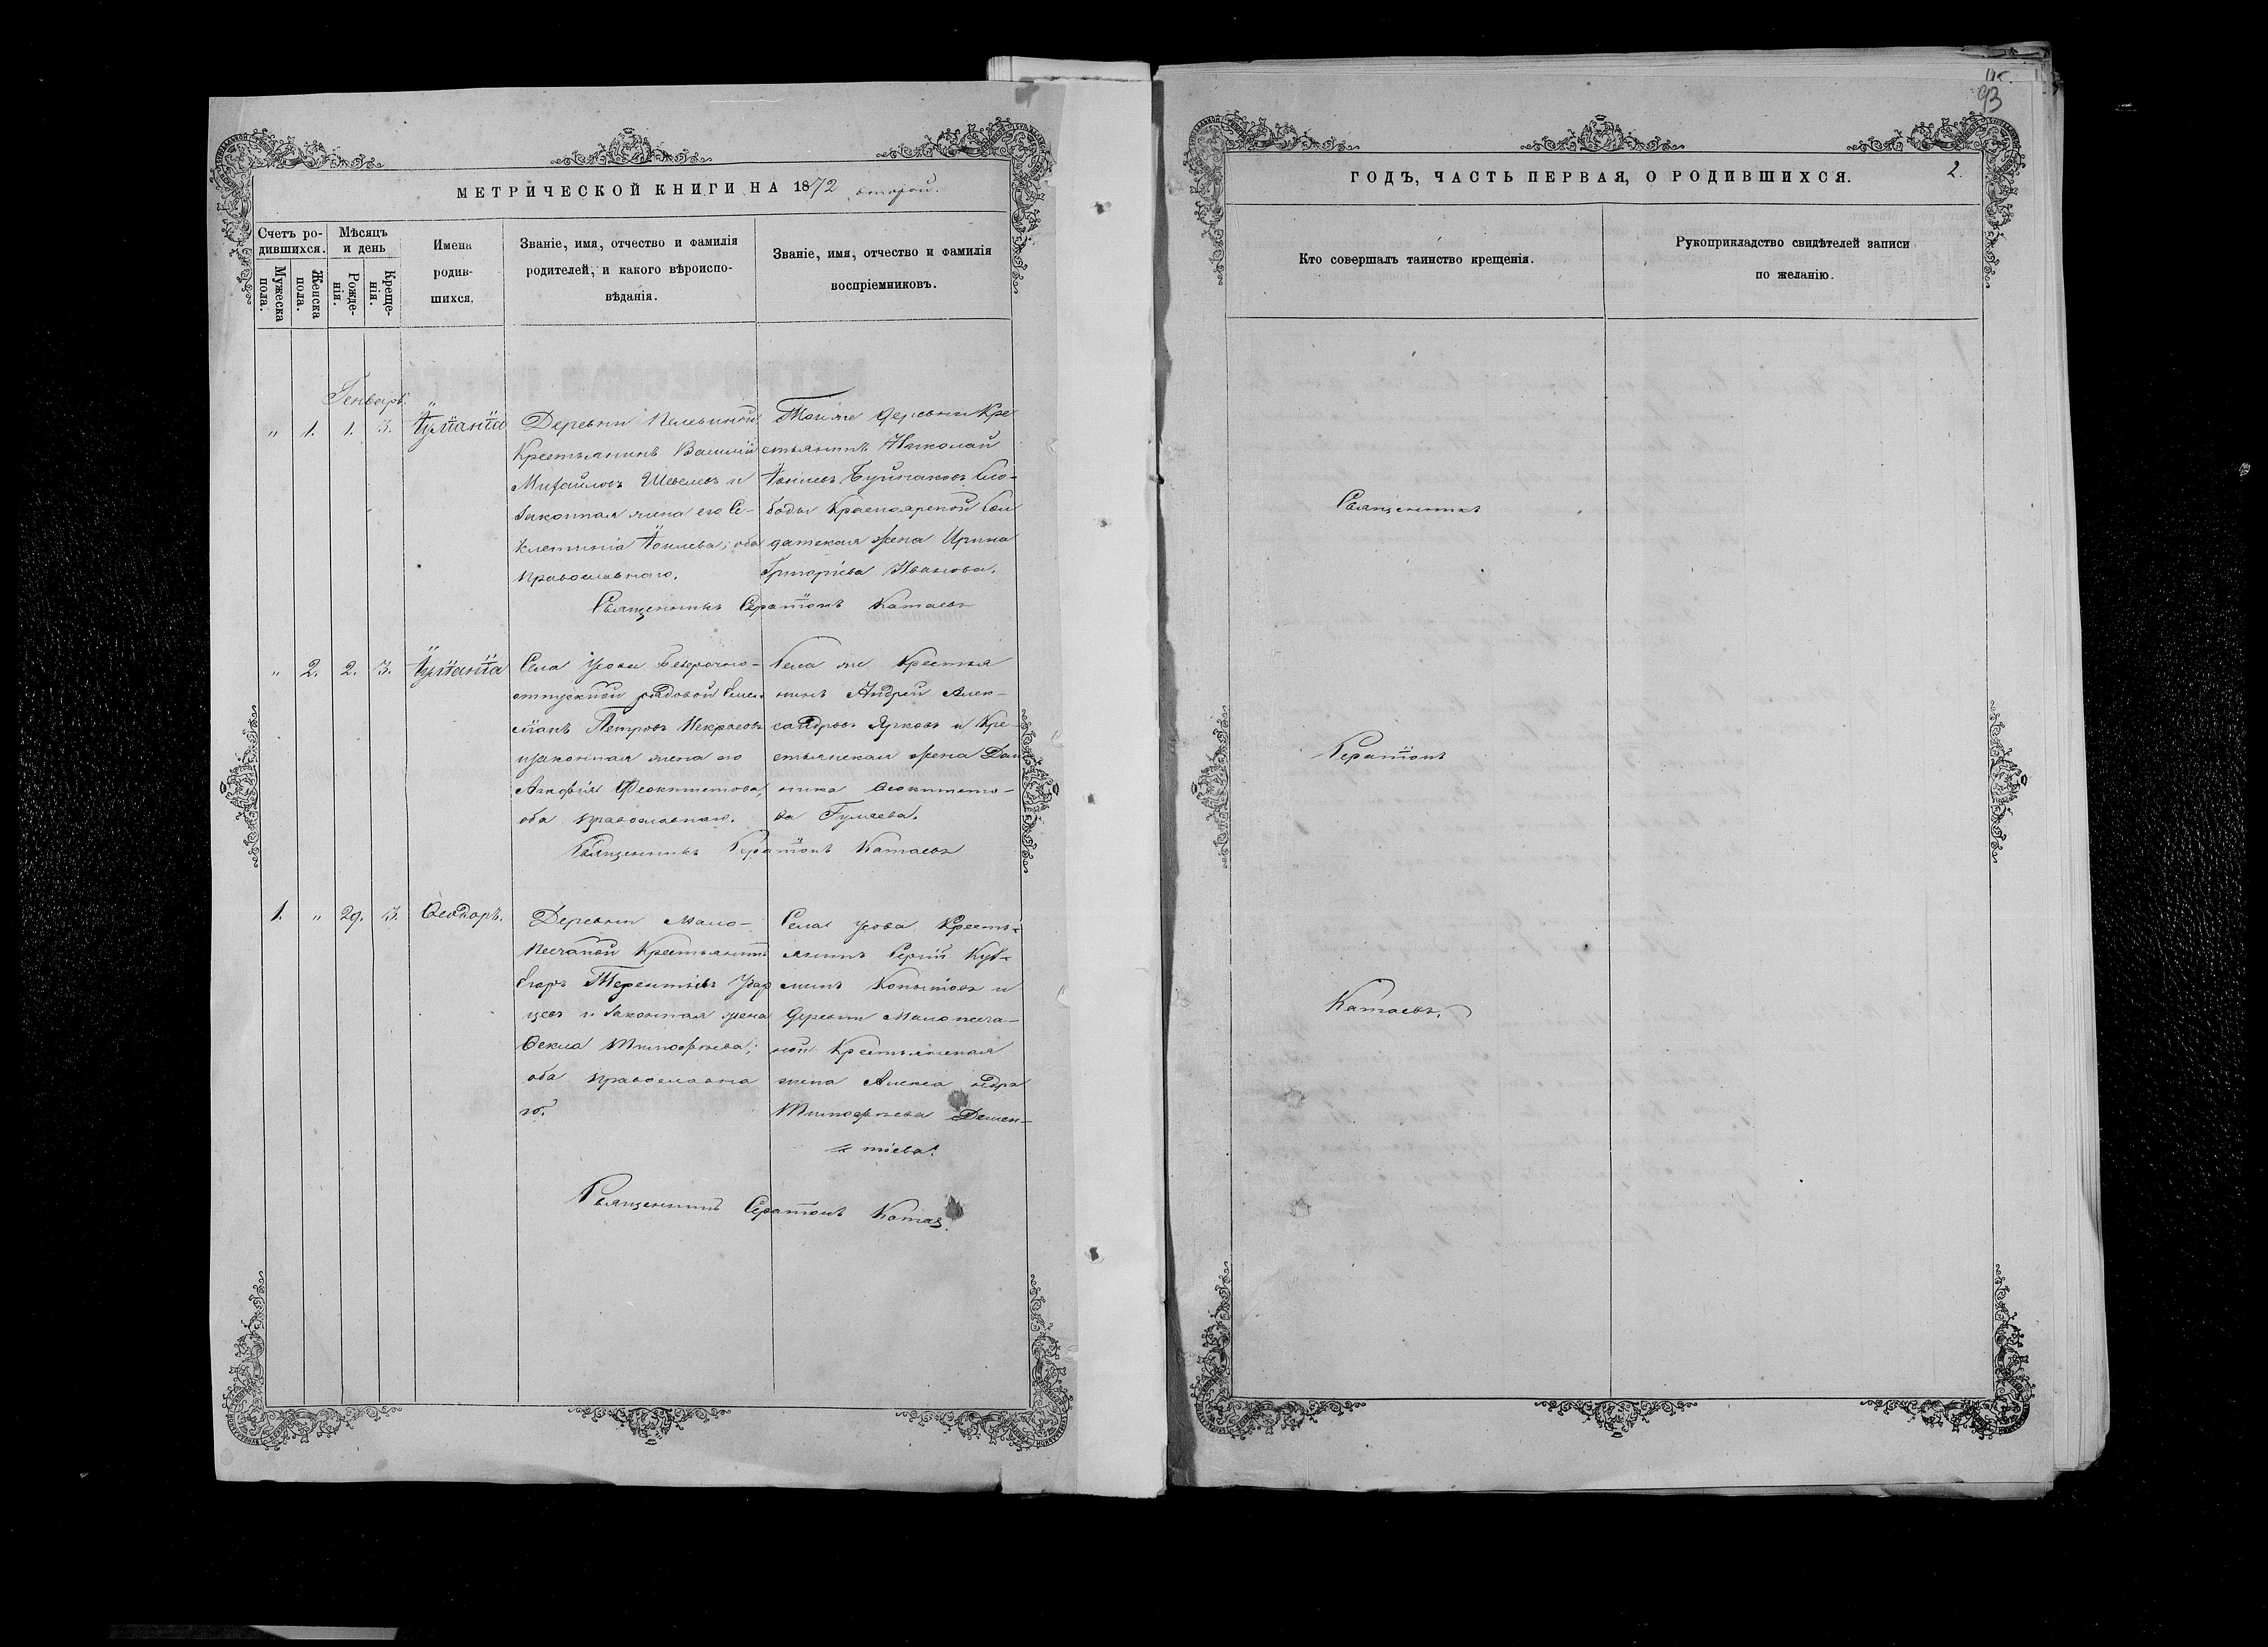 МЕТРИЧЕСКОЙ КНИГИ НА 1872 второй.
Счетъ родившихся.
Мужеска пола.
Женска пола.
Мѣсяцъ и день
Рожденія.
Крещенія.
Имена
родив-
шихся.
Званіе, имя, отчество и фамилія
родителей, и какого вѣроиспо-
вѣданія.
Званіе, имя, отчество и фамилія
воспріемниковъ.
Генварь
" 1. 1. 3. Іуліанія
Деревни
Крестьянинъ Василій
Михайловъ Шевелевъ и
законная жена его Се-
клетинія Іовлева; оба
православнаго.
Тойже деревни Кре
стьянинъ Николай
Іовлевъ Сло-
боды Красноярской Сол
датская жена Ирина
Григоріева Иванова.
Священникъ Серапіонъ Катаевъ
" 2. 2. 3. Іуліанія
Села Усова Безсрочно-
отпускной рядовой Емел
ліанъ Петровъ Некрасовъ
и законная жена его
Агафія Феоктистова,
оба православнаго.
Села же Крестья
нинъ Андрей Алек-
сандровъ Ярковъ и Кре-
стьянская жена Дом
ника Феоктисто-
ва Гуляева.
Священникъ Серапіонъ Катаевъ
1. " 29. 3. Ѳеодоръ.
Деревни Мало-
Песчаной Крестьянинъ
Егоръ Терентьевъ Удар
цевъ и законная жена
Ѳекла Тимофѣева;
оба православна
го.
Села Усова Кресть-
янинъ Сергій Куз-
минъ Копытовъ и
деревни Малопесча-
ной Крестьянская
жена Александра
Тимофѣева Демен-
тіева.
Священникъ Серапіонъ Катаев.
93
2.
ГОДЪ, ЧАСТЬ ПЕРВАЯ, О РОДИВШИХСЯ.
Кто совершалъ таинство крещенія.
Рукоприкладство свидѣтелей записи
по желанію.
Священникъ
Серапіонъ
Катаевъ.